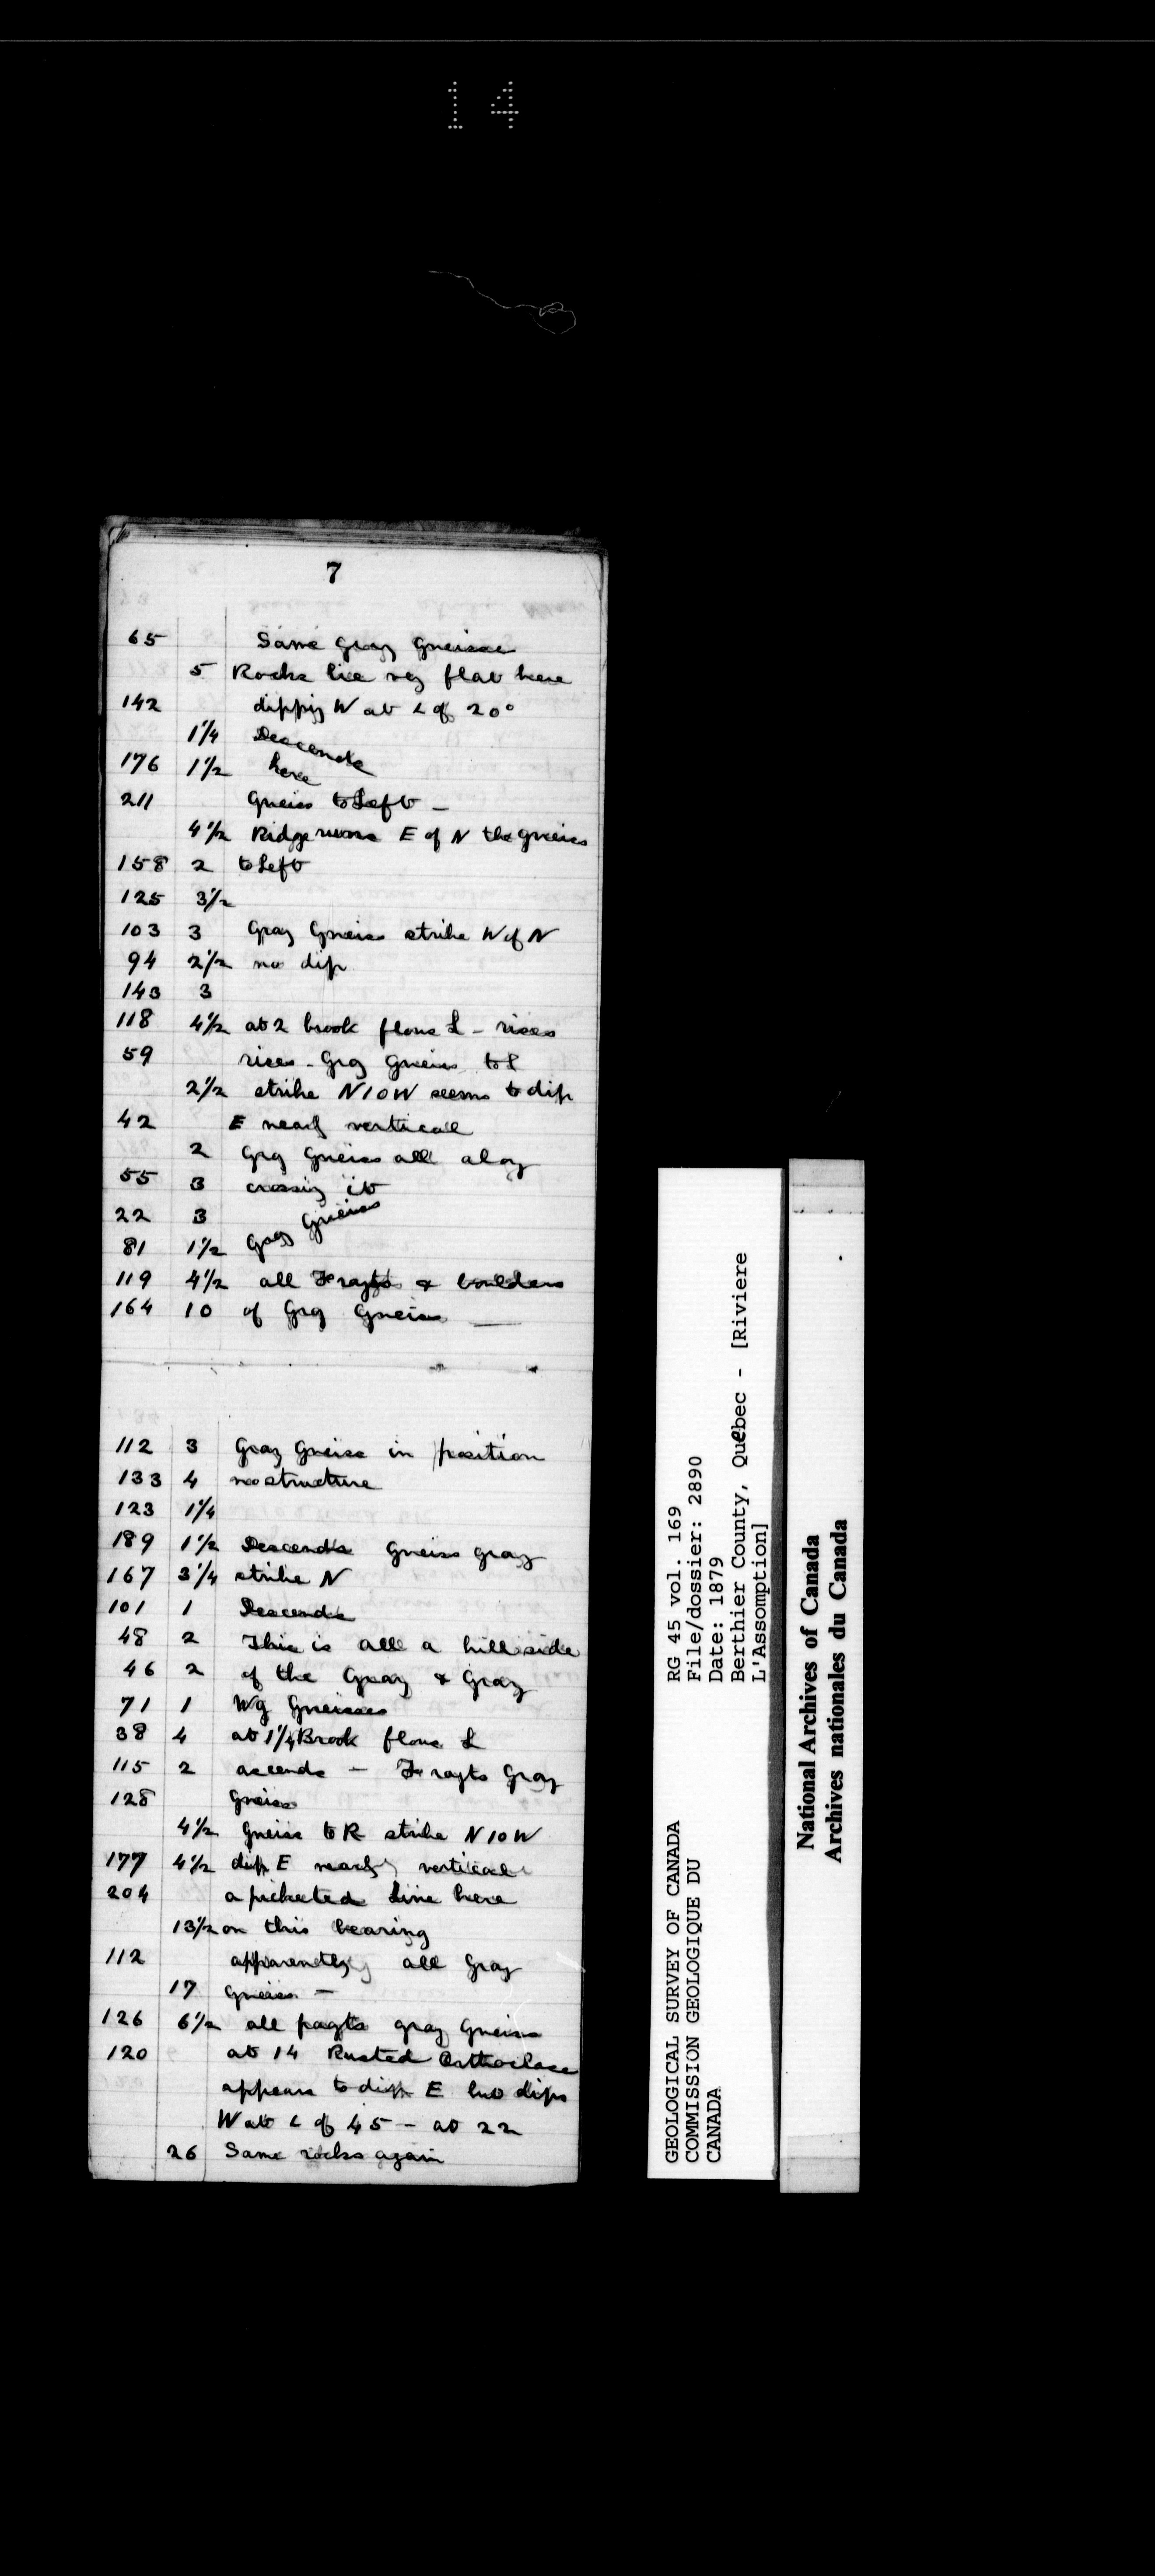 14
7
65 Same Gray Gneisses
5 Rocks lie very flat here
142 dipping W at L of 20°
1 1/4 Descends
176 1 1/2 here
211 Gneiss to Left —
4 1/2 Ridge runs E of N the gneiss
158 2 to Left
125 3 1/2
103 3 Gray Gneiss strike W of N
94 2 1/2 no dip
143 3
118 4 1/2 at 2 brook flows L - rises
59 rises - Gray Gneiss to L
2 1/2 strike N10W seems to dip
42 E nearly vertical
2 Gray Gneiss all along
55 3 crossing it
22 3
81 1 1/2 Gray Gneiss
119 4 1/2 all Fragts & boulders
164 10 of Gray Gneiss —
112 3 Gray Gneiss in position
133 4 no structure
123 1 1/4
189 1 1/2 Descends Gneiss gray
167 3 1/4 strike N
101 1 Descends
48 2 This is all a hill side
46 2 of the Gray & Gray
71 1 Wg Gneisses
38 4 at 1 1/4 Brook flows L
115 2 ascends — Fragts Gray
128 Gneiss
4 1/2 Gneiss to R strike N10W
177 4 1/2 dip E nearly vertical
204 a picketed line here
13 1/2 on this bearing
112 apparently all Gray
17 Gneiss —
126 6 1/2 all fragts gray Gneiss
120 at 14 Rusted Orthoclase
appears to dip E but dips
W at L of 45 — at 22
26 Same rocks again
GEOLOGICAL SURVEY OF CANADA
COMMISSION GEOLOGIQUE DU
CANADA
RG 45 vol. 169
File/dossier: 2890
Date: 1879
Berthier County, Québec - [Riviere
L'Assomption]
National Archives of Canada
Archives nationales du Canada